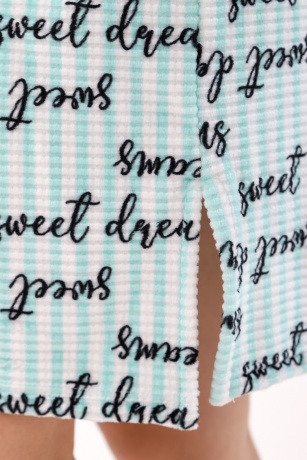 sweet drea
sweet
eams
sweet drea
sweet
eams
sweet drea
sweet d
sweet
sweet d
sweet